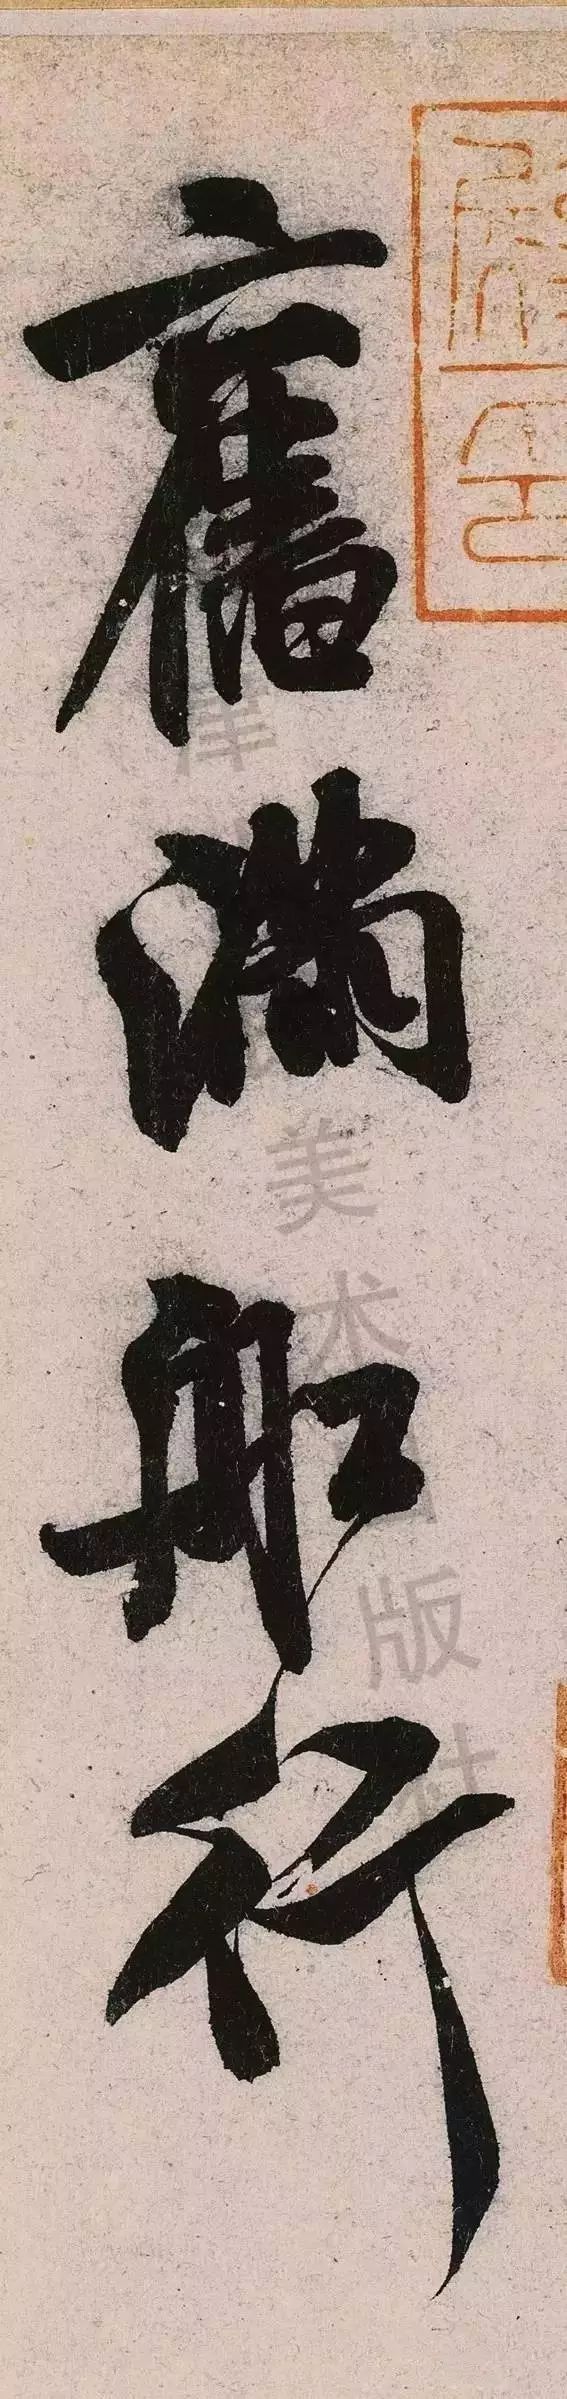 舊滿船行
津
美术出版社